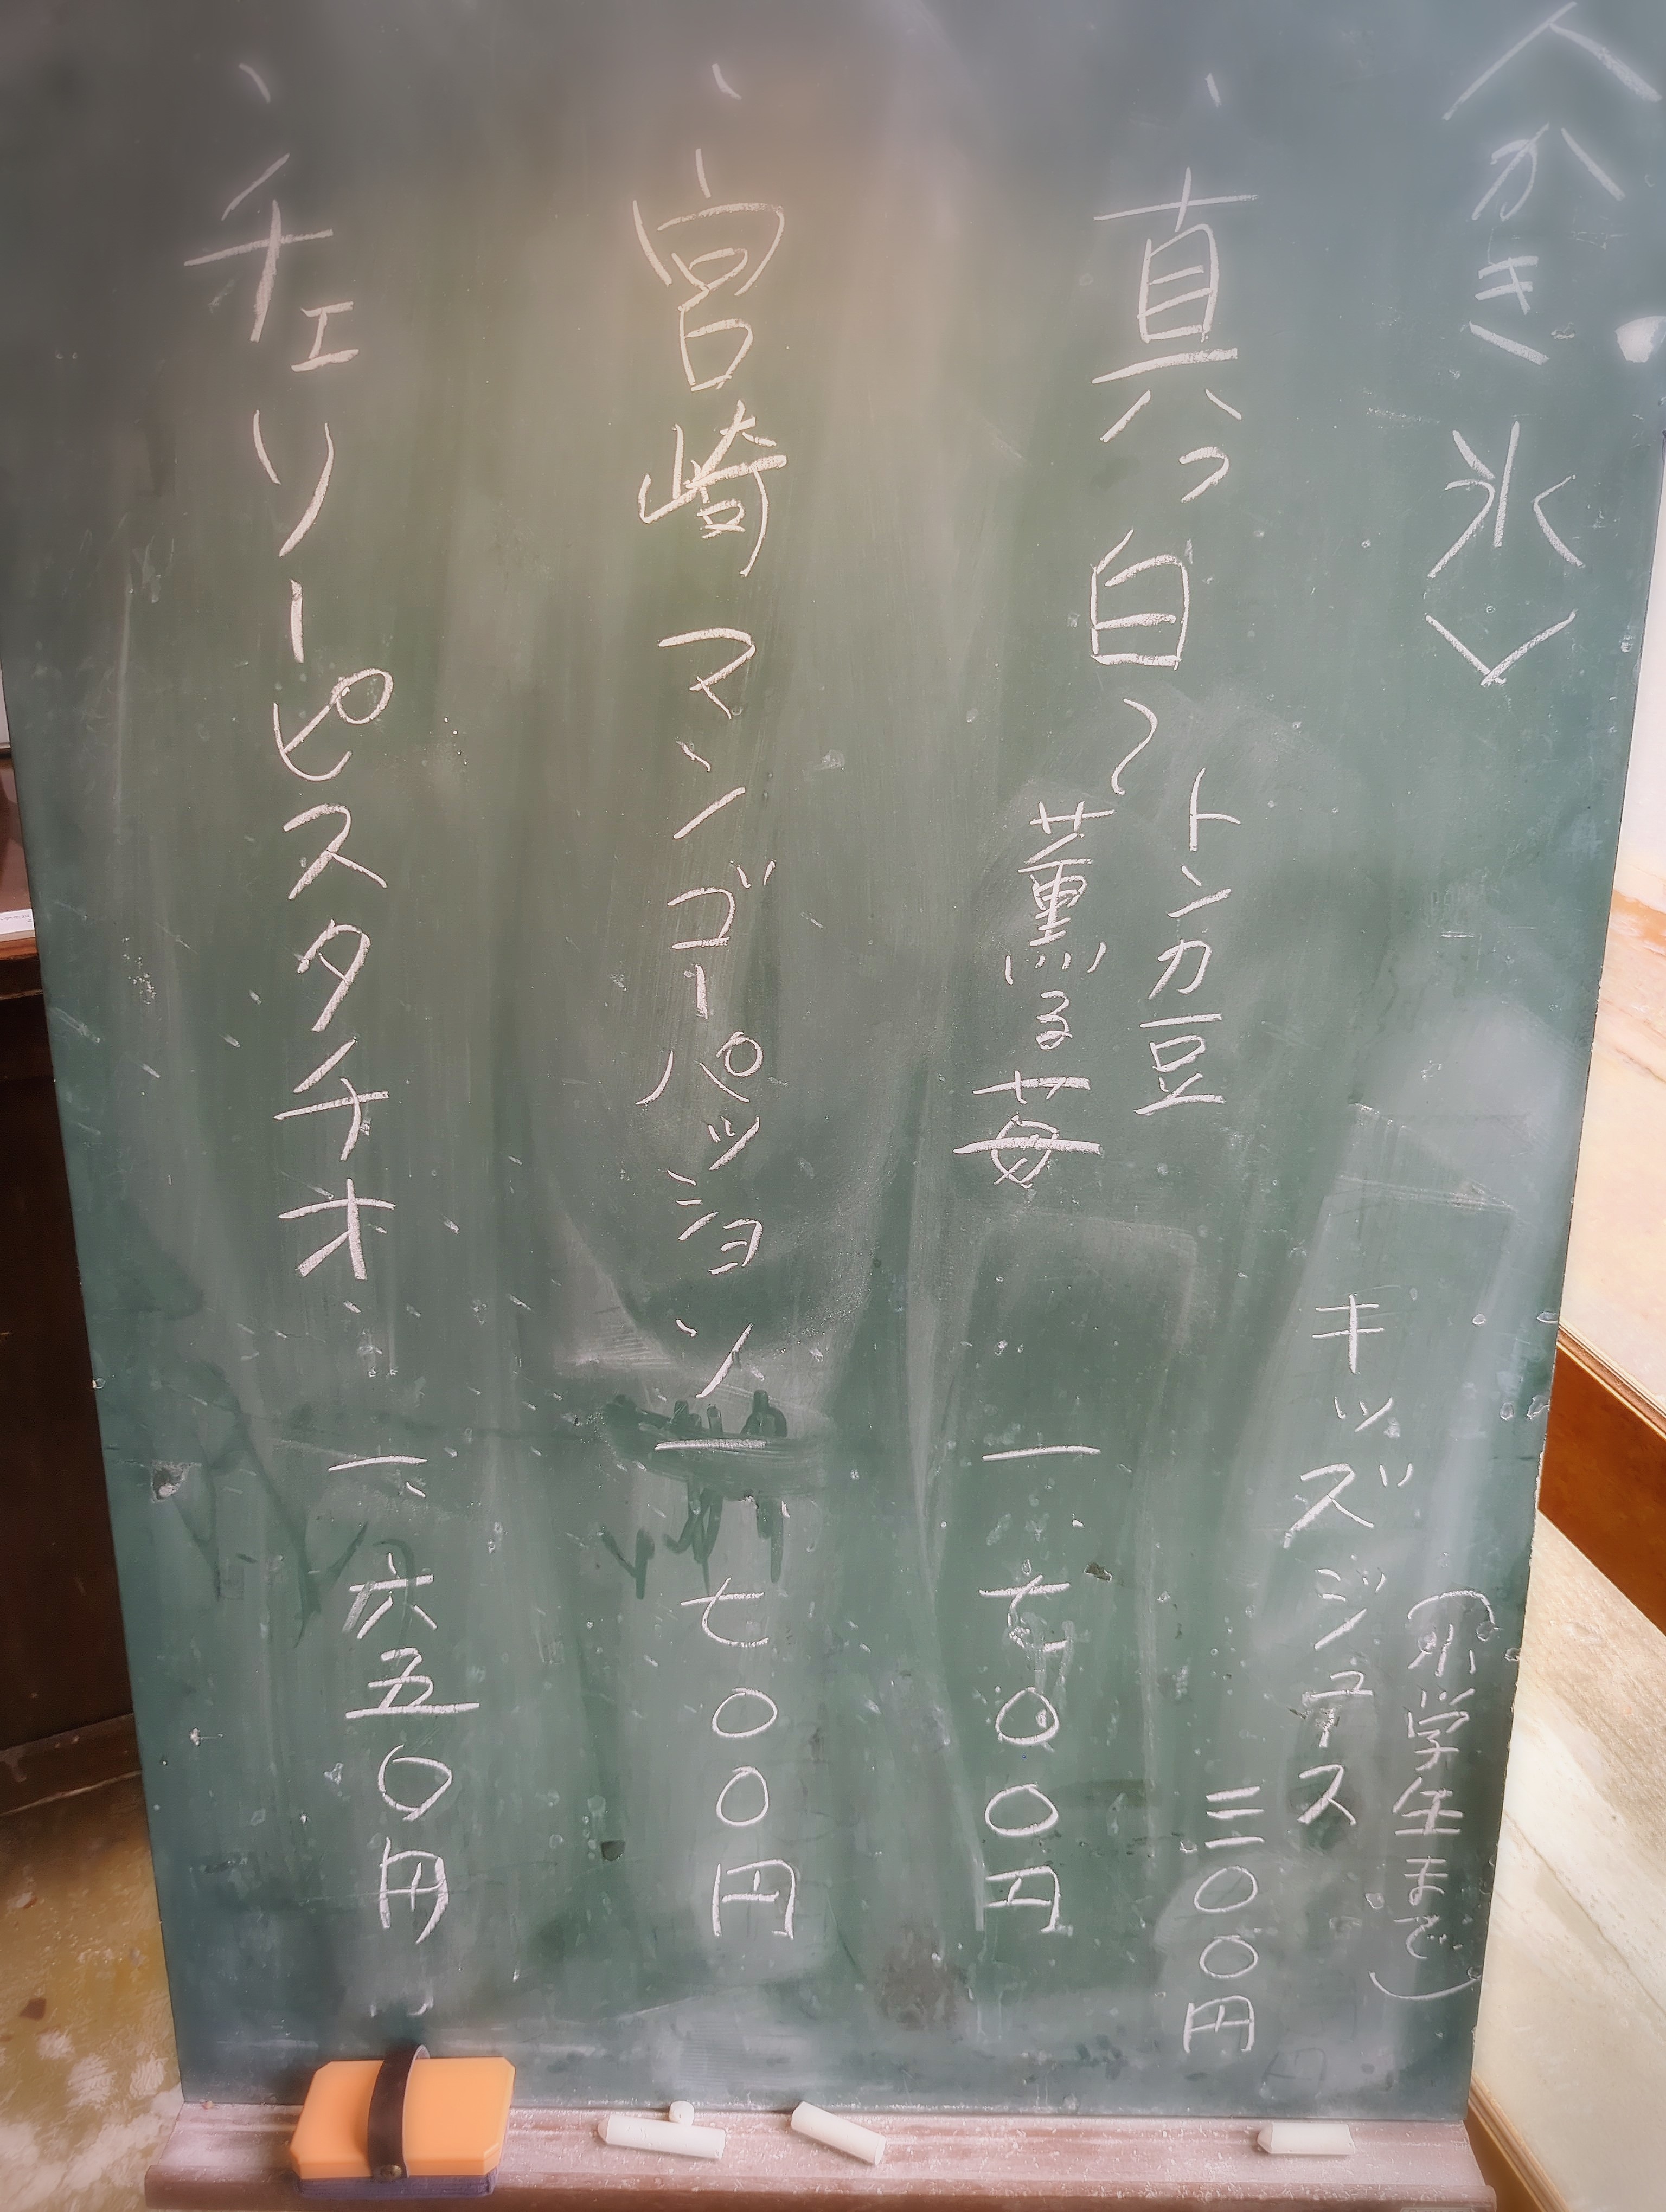 〈かき氷〉
、真っ白〜トンカ豆薫る苺 一、七〇〇円
、宮崎マンゴーパッション 一、七〇〇円
、チェリーピスタチオ 一、六五〇円
キッズジュース
(小学生まで)
三〇〇円